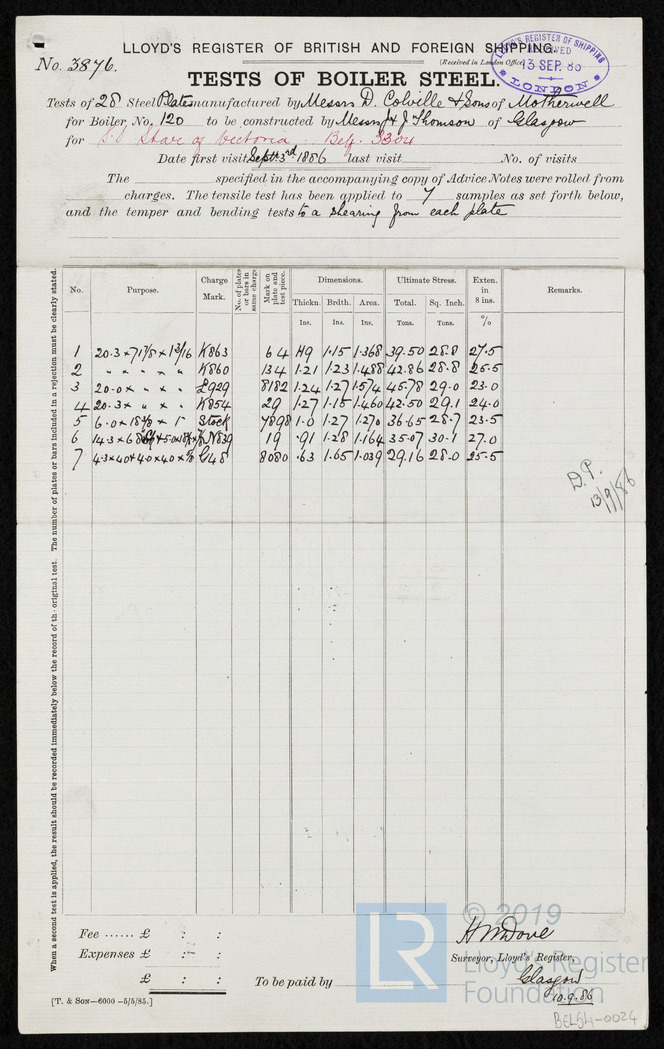 LLOYD'S REGISTER OF BRITISH AND FOREIGN SHIPPING.
No. 3876.
(Received in London Office)
LLOYD'S REGISTER OF SHIPPING
RECEIVED
13 SEP. 86
LONDON
TESTS OF BOILER STEEL.
Tests of 28 Steel Plates manufactured by Messrs D. Colville & Sons of Motherwell
for Boiler No. 120 to be constructed by Messrs J & J Thomson of Glasgow
for S.S Star of Victoria Belf. 3304
Date first visit Sept. 3rd 1886 last visit No. of visits
The specified in the accompanying copy of Advice Notes were rolled from
charges. The tensile test has been applied to 7 samples as set forth below,
and the temper and bending tests to a shearing from each plate
No. Purpose. Charge Mark. No. of plates or bars in same charge Mark on plate and test piece. Dimensions. Ultimate Stress. Exten. in 8 ins. Remarks.
Thickn. Brdth. Area. Total. Sq. Inch.
Ins. Ins. Ins. Tons. Tons. %
1 20.3 × 71 7/8 × 1 3/16 K863 64 1.15 1.368 39.50 28.8 27.5
2 " " " " " K860 134 1.21 1.23 1.488 42.86 28.8 25.5
3 20.0 × " × " L929 8182 1.24 1.27 1.574 45.78 29.0 23.0
4 20.3 × " × " K854 29 1.27 1.15 1.460 42.50 29.1 24.0
5 6.0 × × 1" Stock 7898 1.0 1.27 1.270 36.65 28.7 23.5
6 14.3 × N839 19 .91 1.28 1.164 35.07 30.1 27.0
7 4.3 × 40 × 4.0 × 40 × 5/8 G48 8080 .63 1.65 1.039 29.16 28.0 25.5
D.P.
13/9/86
When a second test is applied, the result should be recorded immediately below the record of th original test. The number of plates or bars included in a rejection must be clearly stated.
Fee ...... £ : :
Expenses £ : :
£ : :
To be paid by
Surveyor, Lloyd's Register,
Glasgow
10.9.86
[T. & SON—6000 —5/5/85.]
BELSH-0024
LR
© 2019
Lloyd's Register
Foundation